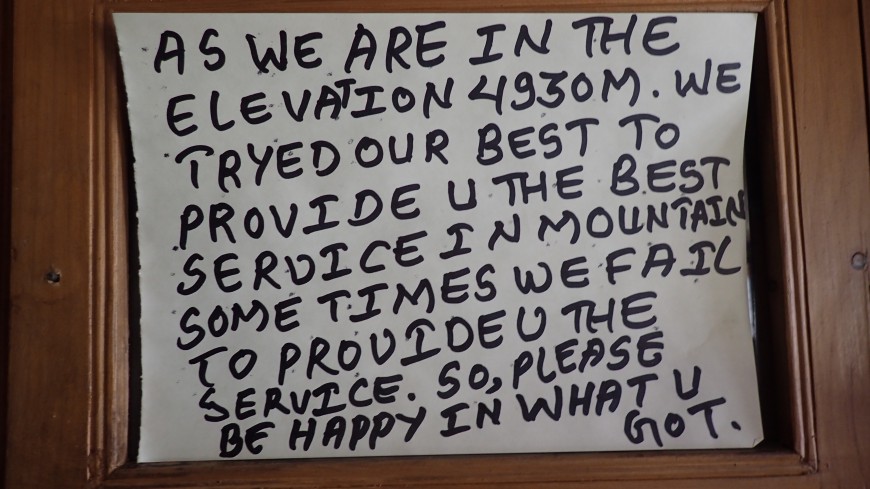 AS WE ARE IN THE
ELEVATION 4930M. WE
TRYED OUR BEST TO
PROVIDE U THE BEST
SERVICE IN MOUNTAIN
SOME TIMES WE FAIL
TO PROVIDE U THE
SERVICE. SO, PLEASE
BE HAPPY IN WHAT U
GOT.